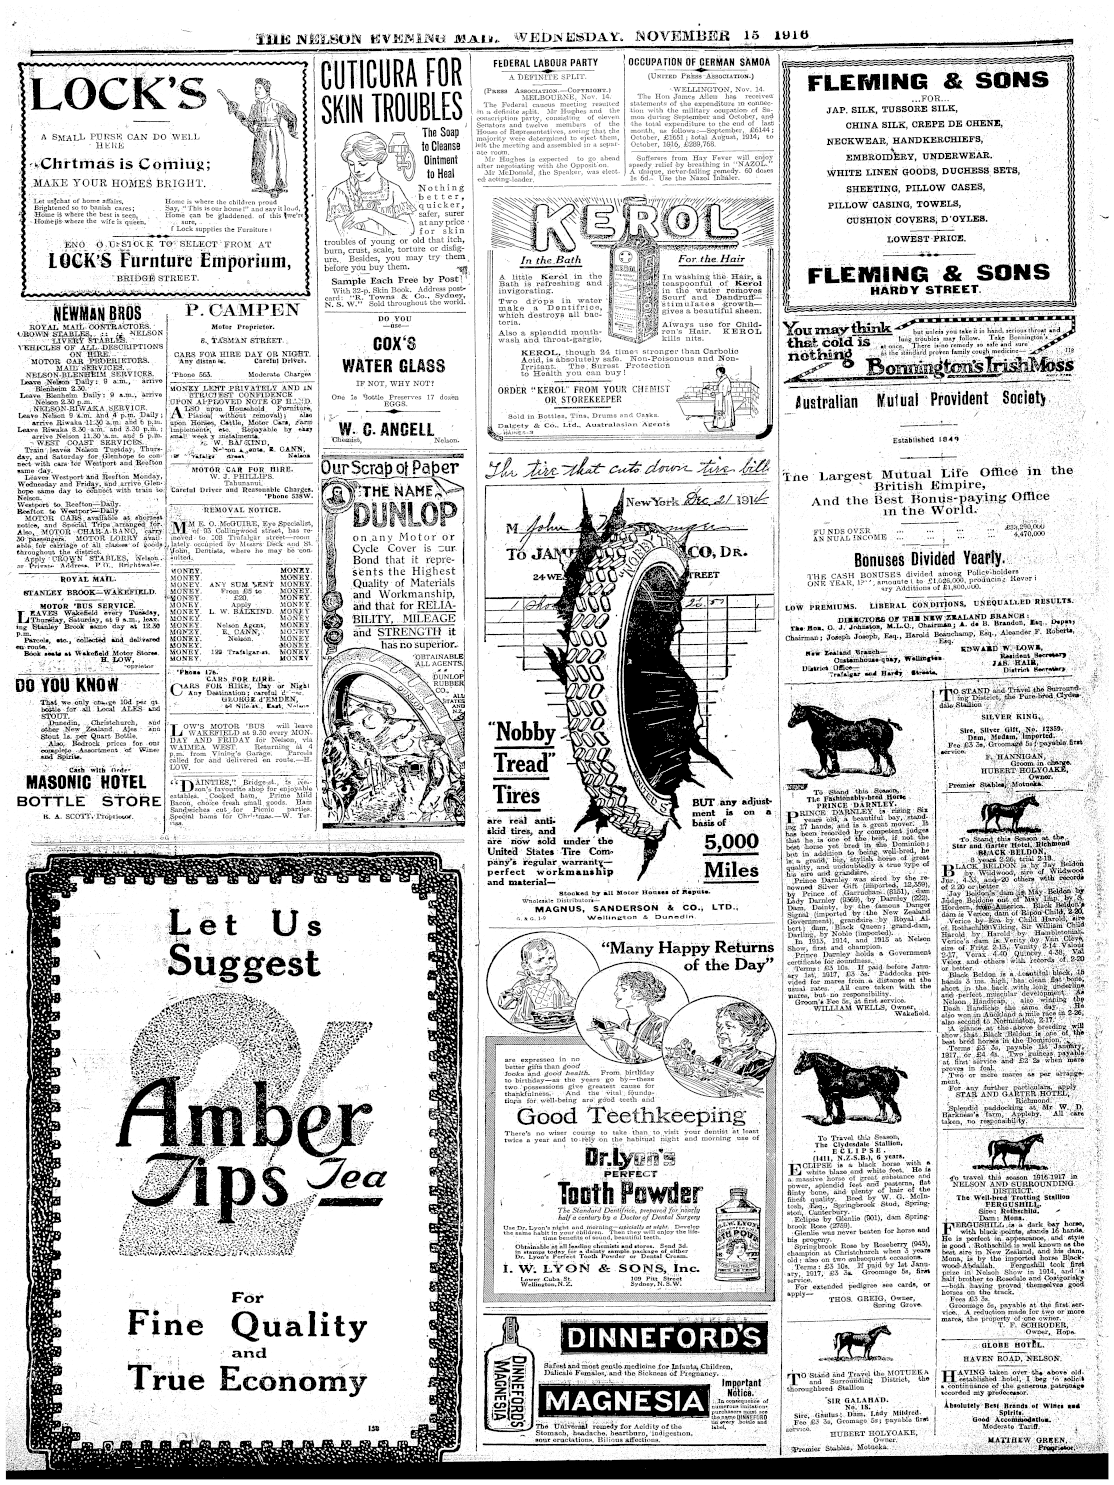 THE NELSON EVENING MAIL, WEDNESDAY, NOVEMBER 15 1916
LOCK'S
A SMALL PURSE CAN DO WELL
HERE
Chrtmas is Comiug;
MAKE YOUR HOMES BRIGHT.
Let us chat of home affairs,
Brightened so to banish cares;
Home is where the best is seen,
Home is where the wife is queen.
Home is where the children proud
Say, "This is our home!" and say it loud,
Home can be gladdened, of this we're
sure,
f Lock supplies the Furniture!
STOCK TO SELECT FROM AT
LOCK'S Furnture Emporium,
BRIDGE STREET.
NEWMAN BROS
ROYAL MAIL CONTRACTORS.
CROWN STABLES, NELSON
LIVERY STABLES.
VEHICLES OF ALL DESCRIPTIONS
ON HIRE.
MOTOR CAR PROPRIETORS.
MAIL SERVICES.
NELSON-BLENHEIM SERVICES.
Leave Nelson Daily: 9 a.m., arrive
Blenheim 2.30.
Leave Blenheim Daily: 9 a.m., arrive
Nelson 2.30 p.m.
NELSON-RIWAKA SERVICE.
Leave Nelson 9 a.m. and 4 p.m. Daily;
arrive Riwaka 11.30 a.m. and 6 p.m.
Leave Riwaka 8.30 a.m. and 3.30 p.m.;
arrive Nelson 11.30 a.m. and 6 p.m.
WEST COAST SERVICES.
Train leaves Nelson Tuesday, Thurs-
day, and Saturday for Glenhope to con-
nect with cars for Westport and Reefton
same day.
Leaves Westport and Reefton Monday,
Wednesday and Friday, and arrive Glen-
hope same day to connect with train to
Nelson.
Westport to Reefton—Daily.
Reefton to Westport—Daily
MOTOR CARS available at shortest
notice, and Special Trips arranged for.
Also, MOTOR CHAR-A-BANC, carry
30 passengers. MOTOR LORRY avail-
able for carriage of all classes of goods
throughout the district.
Apply CROWN STABLES, Nelson,
or Private Address, P.O., Brightwater.
ROYAL MAIL.
STANLEY BROOK—WAKEFIELD.
MOTOR 'BUS SERVICE.
LEAVES Wakefield every Tuesday,
Thursday, Saturday, at 9 a.m., leav-
ing Stanley Brook same day at 12.30
p.m.
Parcels, etc., collected and delivered
en route.
Book seats at Wakefield Motor Stores.
H. LOW,
DO YOU KNOW
That we only charge 10d per qt.
bottle for all Local ALES and
STOUT.
Dunedin, Christchurch, and
other New Zealand Ales and
Stout 1s. per Quart Bottle.
Also, Bedrock prices for our
complete Assortment of Wines
and Spirits.
Cash with Order
MASONIC HOTEL
BOTTLE STORE
R. A. SCOTT, Proprietor.
P. CAMPEN
Motor Proprietor.
6, TASMAN STREET.
CARS FOR HIRE DAY OR NIGHT.
Any distance. Careful Driver.
'Phone 563. Moderate Charges
MONEY LENT PRIVATELY AND IN
STRICTEST CONFIDENCE
UPON APPROVED NOTE OF HAND.
ALSO upon Household Furniture,
Pianos (without removal); also
upon Horses, Cattle, Motor Cars, farm
Implements, etc. Repayable by easy
small weekly instalments.
MOTOR CAR FOR HIRE.
W. J. PHILLIPS.
Tahunanui.
Careful Driver and Reasonable Charges.
'Phone 538W.
REMOVAL NOTICE.
MME. O. McGUIRE, Eye Specialist,
of 95 Collingwood street, has re-
moved to 108 Trafalgar street—room
lately occupied by Messrs Deck and St.
John, Dentists, where he may be con-
sulted.
MONEY. MONEY.
MONEY. ANY SUM LENT MONEY.
MONEY. From £5 to MONEY.
MONEY. £20. MONEY.
MONEY. Apply MONEY.
MONEY. L. W. BALKIND. MONEY.
MONEY. Nelson Agent, MONEY.
MONEY. R. CANN, MONEY.
MONEY. Nelson. MONEY.
MONEY. 129 Trafalgar st. MONEY.
'Phone 178.
CARS FOR HIRE.
CARS FOR HIRE, Day or Night
Any Destination; careful
GEORGE d'EMDEN,
64 Nile st. East, Nelson
LOW'S MOTOR 'BUS will leave
WAKEFIELD at 9.30 every MON-
DAY AND FRIDAY for Nelson, via
WAIMEA WEST. Returning at 4
p.m. from Vining's Garage. Parcels
called for and delivered en route.—H.
LOW.
"DAINTIES," Bridge st., is Nel-
son's favourite shop for enjoyable
eatables. Cooked ham, Prime Mild
Bacon, choice fresh small goods. Ham
Sandwiches cut for Picnic parties.
Special hams for Christmas.—W. Ter-
ras.
Let Us
Suggest
Amber
Tips Tea
For
Fine Quality
and
True Economy
158
CUTICURA FOR
SKIN TROUBLES
The Soap
to Cleanse
Ointment
to Heal
Nothing
better,
quicker,
safer, surer
at any price
for skin
troubles of young or old that itch,
burn, crust, scale, torture or disfig-
ure. Besides, you may try them
before you buy them.
Sample Each Free by Post
With 32-p. Skin Book. Address post-
card: "R. Towns & Co., Sydney,
N. S. W." Sold throughout the world.
DO YOU
—use—
COX'S
WATER GLASS
IF NOT, WHY NOT?
One 1s Bottle Preserves 17 dozen
EGGS.
W. C. ANGELL
Chemist, Nelson.
Our Scrap of Paper
THE NAME
DUNLOP
on any Motor or
Cycle Cover is our
Bond that it repre-
sents the Highest
Quality of Materials
and Workmanship,
and that for RELIA-
BILITY, MILEAGE
and STRENGTH it
has no superior.
OBTAINABLE
ALL AGENTS.
DUNLOP
RUBBER
CO.,
ALL
STATES
AND
N.Z.
FEDERAL LABOUR PARTY
A DEFINITE SPLIT.
(PRESS ASSOCIATION.—COPYRIGHT.)
MELBOURNE, Nov. 14.
The Federal caucus meeting resulted
in a definite split. Mr Hughes and the
conscription party, consisting of eleven
Senators and twelve members of the
House of Representatives, seeing that the
majority were determined to eject them,
left the meeting and assembled in a separ-
ate room.
Mr Hughes is expected to go ahead
after negotiating with the Opposition.
Mr McDonald, the Speaker, was elect-
ed acting-leader.
OCCUPATION OF GERMAN SAMOA
(UNITED PRESS ASSOCIATION.)
WELLINGTON, Nov. 14.
The Hon James Allen has received
statements of the expenditure in connec-
tion with the military occupation of Sa-
moa during September and October, and
the total expenditure to the end of last
month, as follows:—September, £6144;
October, £1651; total August, 1914, to
October, 1916, £289,768.
Sufferers from Hay Fever will enjoy
speedy relief by breathing in "NAZOL."
A unique, never-failing remedy. 60 doses
1s 6d. Use the Nazol Inhaler.
KEROL
In the Bath
A little Kerol in the
Bath is refreshing and
invigorating.
Two drops in water
make a Dentifrice,
which destroys all bac-
teria.
Also a splendid mouth-
wash and throat-gargle.
For the Hair
In washing the Hair, a
teaspoonful of Kerol
in the water removes
Scurf and Dandruff—
stimulates growth—
gives a beautiful sheen.
Always use for Child-
ren's Hair. KEROL
kills nits.
KEROL, though 24 times stronger than Carbolic
Acid, is absolutely safe. Non-Poisonous and Non-
Irritant. The Surest Protection
to Health you can buy!
ORDER "KEROL" FROM YOUR CHEMIST
OR STOREKEEPER
Sold in Bottles, Tins, Drums and Casks.
Dalgety & Co. Ltd., Australasian Agents
The tire that cuts down tire bills
New York Dec. 21 1914
M John
TO JAM CO, DR.
24 WE STREET
"Nobby
Tread"
Tires
are real anti-
skid tires, and
are now sold under the
United States Tire Com-
pany's regular warranty—
perfect workmanship
and material—
BUT any adjust-
ment is on a
basis of
5,000
Miles
Stocked by all Motor Houses of Repute.
Wholesale Distributors—
MAGNUS, SANDERSON & CO., LTD.,
Wellington & Dunedin.
"Many Happy Returns
of the Day"
are expressed in no
better gifts than good
looks and good health. From birthday
to birthday—as the years go by—these
two possessions give greatest cause for
thankfulness. And the vital founda-
tions for well-being are good teeth and
Good Teethkeeping
There's no wiser course to take than to visit your dentist at least
twice a year and to rely on the habitual night and morning use of
Dr. Lyon's
PERFECT
Tooth Powder
The Standard Dentifrice, prepared for nearly
half a century by a Doctor of Dental Surgery
Use Dr. Lyon's night and morning—uniquely at night. Develop
the same habit in your children. Then they will enjoy the life-
time benefits of sound, beautiful teeth.
Obtainable at all leading chemists and stores. Send 3d.
in stamps today for a dainty sample package of either
Dr. Lyon's Perfect Tooth Powder or Dental Cream.
I. W. LYON & SONS, Inc.
Lower Cuba St. 109 Pitt Street
Wellington, N.Z. Sydney, N.S.W.
DINNEFORD'S
MAGNESIA
DINNEFORD'S
Safest and most gentle medicine for Infants, Children,
Delicate Females, and the Sickness of Pregnancy.
MAGNESIA
Important
Notice.
In consequence of
numerous imitations
purchasers must see
the name DINNEFORD
on every bottle and
label.
The Universal remedy for Acidity of the
Stomach, headache, heartburn, indigestion,
sour eructations, Bilious affections.
FLEMING & SONS
...FOR...
JAP. SILK, TUSSORE SILK,
CHINA SILK, CREPE DE CHENE,
NECKWEAR, HANDKERCHIEFS,
EMBROIDERY, UNDERWEAR.
WHITE LINEN GOODS, DUCHESS SETS,
SHEETING, PILLOW CASES,
PILLOW CASING, TOWELS,
CUSHION COVERS, D'OYLES.
LOWEST PRICE.
FLEMING & SONS
HARDY STREET.
You may think
that cold is
nothing
but unless you take it in hand, serious throat and
lung troubles may follow. Take Bonnington's
at once. There is no remedy so safe and sure
as the standard proven family cough medicine—
Bonnington's Irish Moss
Australian Mutual Provident Society.
Established 1849
The Largest Mutual Life Office in the
British Empire,
And the Best Bonus-paying Office
in the World.
FUNDS OVER £35,290,000
ANNUAL INCOME 4,470,000
Bonuses Divided Yearly.
THE CASH BONUSES divided among Policy-holders
ONE YEAR, amount to £1,026,000, producing Rever-
ary Additions of £1,800,000.
LOW PREMIUMS. LIBERAL CONDITIONS, UNEQUALLED RESULTS.
DIRECTORS OF THE NEW ZEALAND BRANCH:
The Hon. G. J. Johnston, M.L.C., Chairman; A. de B. Brandon, Esq., Deputy
Chairman; Joseph Joseph, Esq., Harold Beauchamp, Esq., Alexander F. Roberts,
Esq.
New Zealand Branch—
Customhouse quay, Wellington.
District Office—
Trafalgar and Hardy Streets.
EDWARD W. LOWE,
Resident Secretary
JAS. HAIR,
District Secretary
To Stand this Season,
The Fashionably-bred Horse
PRINCE DARNLEY.
PRINCE DARNLEY is rising Six
years old, a beautiful bay, stand-
ing 17 hands, and is a great mover. It
has been remarked by competent judges
that he is one of the best, if not the
best horse yet bred in the Dominion;
but in addition to being well-bred, he
is a grand, big, stylish horse of great
quality and undoubtedly a true type of
his sire and grandsire.
Prince Darnley was sired by the re-
nowned Silver Gift (imported, 12,359),
by Prince of Garruchan (8151), dam
Lady Darnley (9569), by Darnley (222).
Dam, Dainty, by the famous Danger
Signal (imported by the New Zealand
Government), grandsire by Royal Al-
bert; dam, Black Queen; grand-dam,
Darling, by Noble (imported).
In 1913, 1914, and 1915 at Nelson
Show, first and champion.
Prince Darnley holds a Government
certificate for soundness.
Terms: £3 10s. If paid before Janu-
ary 1st, 1917, £3 3s. Paddocks pro-
vided for mares from a distance at the
usual rates. All care taken with the
mares, but no responsibility.
Groom's Fee 5s, at first service.
WILLIAM WELLS, Owner,
Wakefield.
To Travel this Season,
The Clydesdale Stallion,
ECLIPSE.
(1411, N.Z.S.B.), 6 years.
ECLIPSE is a black horse with a
white blaze and white feet. He is
a massive horse of great substance and
power, splendid feet and pasterns, flat
flinty bone, and plenty of hair of the
finest quality. Bred by W. G. McIn-
tosh, Esq., Springbrook Stud, Spring-
ston, Canterbury.
Eclipse by Glenlie (901), dam Spring-
brook Rose (2759).
Glenlie was never beaten for horse and
his progeny.
Springbrook Rose by Roseberry (945),
champion at Christchurch when 3 years
old; also on two subsequent occasions.
Terms: £3 10s. If paid by 1st Janu-
ary, 1917, £3 3s. Groomage 5s, first
service.
For extended pedigree see cards, or
apply—
THOS. GREIG, Owner,
Spring Grove.
TO Stand and Travel the MOTUEKA
and Surrounding District, the
thoroughbred Stallion
SIR GALAHAD.
No. 18.
Sire, Ganius; Dam, Lady Mildred.
Fee £3 3s, Groomage 5s; payable first
service.
HUBERT HOLYOAKE,
Owner.
Premier Stables, Motueka.
TO STAND and Travel the Surround-
ing District, the Pure-bred Clydes-
dale Stallion
SILVER KING,
Sire, Silver Gift, No. 12359.
Dam, Madam, Imported.
Fee £3 3s, Groomage 5s; payable first
service.
F. HANNIGAN,
Groom in charge.
HUBERT HOLYOAKE,
Owner.
Premier Stables, Motueka.
To Stand this Season at the
Star and Garter Hotel, Richmond
BLACK BELDON.
8 years 2-26, trial 2-18.
BLACK BELDON is by Jay Beldon
by Wildwood, sire of Wildwood
Jur. 4.33, and 20 others with records
of 2.20 or better
Jay Beldon's dam is May Beldon by
Judge Beldone out of May Imp. by S.
Hordern, from America. Black Beldon's
dam is Venice, dam of Ripon Child, 2.20.
Venice by Era by Child Harold, sire
of Rothschild, Viking, Sir William Child
Harold by Harold by Hambletonian.
Venice's dam is Verity by Van Cleve,
sire of Fritz 2-13, Vanity 2-14 Valour
2-17, Verax 4-40 Quincey 4-38, Val
Velox and others with records of 2-20
or better.
Black Beldon is a beautiful black, 15
hands 3 ins. high, has clean flat bone,
short in the back with long underline
and perfect muscular development. As
Nelson Handicap, also winning the
Dash Handicap the same day. He
also won in Auckland a mile race in 2-26,
also second to Norimiston, 2-17.
A glance at the above breeding will
show that Black Beldon is one of the
best bred horses in the Dominion.
Terms £3 3s, payable 1st January,
1917, or £4 4s. Two guineas payable
at first service and £2 2s when mare
proves in foal.
Two or more mares as per arrange-
ment.
For any further particulars, apply
STAR AND GARTER HOTEL,
Richmond.
Splendid paddocking at Mr W. D.
Harkness's farm, Appleby. All care
taken, no responsibility.
To travel this season 1916-1917 in
NELSON AND SURROUNDING
DISTRICT.
The Well-bred Trotting Stallion
FERGUSHILL,
Sire: Rothschild.
Dam: Mona.
FERGUSHILL is a dark bay horse,
with black points, stands 16 hands.
He is perfect in appearance, and style
is good. Rothschild is well known as the
best sire in New Zealand, and his dam,
Mona, is by the imported horse Black-
wood Abdallah. Fergushill took first
prize in Nelson Show in 1914, and is
half brother to Rosedale and Costigorisky
—both having proved themselves good
horses on the track.
Fees £3 3s.
Groomage 5s, payable at the first ser-
vice. A reduction made for two or more
mares, the property of one owner.
T. F. SCHRODER,
Owner, Hope.
GLOBE HOTEL.
HAVEN ROAD, NELSON.
HAVING taken over the above old-
established hotel, I beg to solicit
a continuance of the generous patronage
accorded my predecessor.
Absolutely Best Brands of Wines and
Spirits.
Good Accommodation.
Moderate Tariff.
MATTHEW GREEN,
Proprietor.